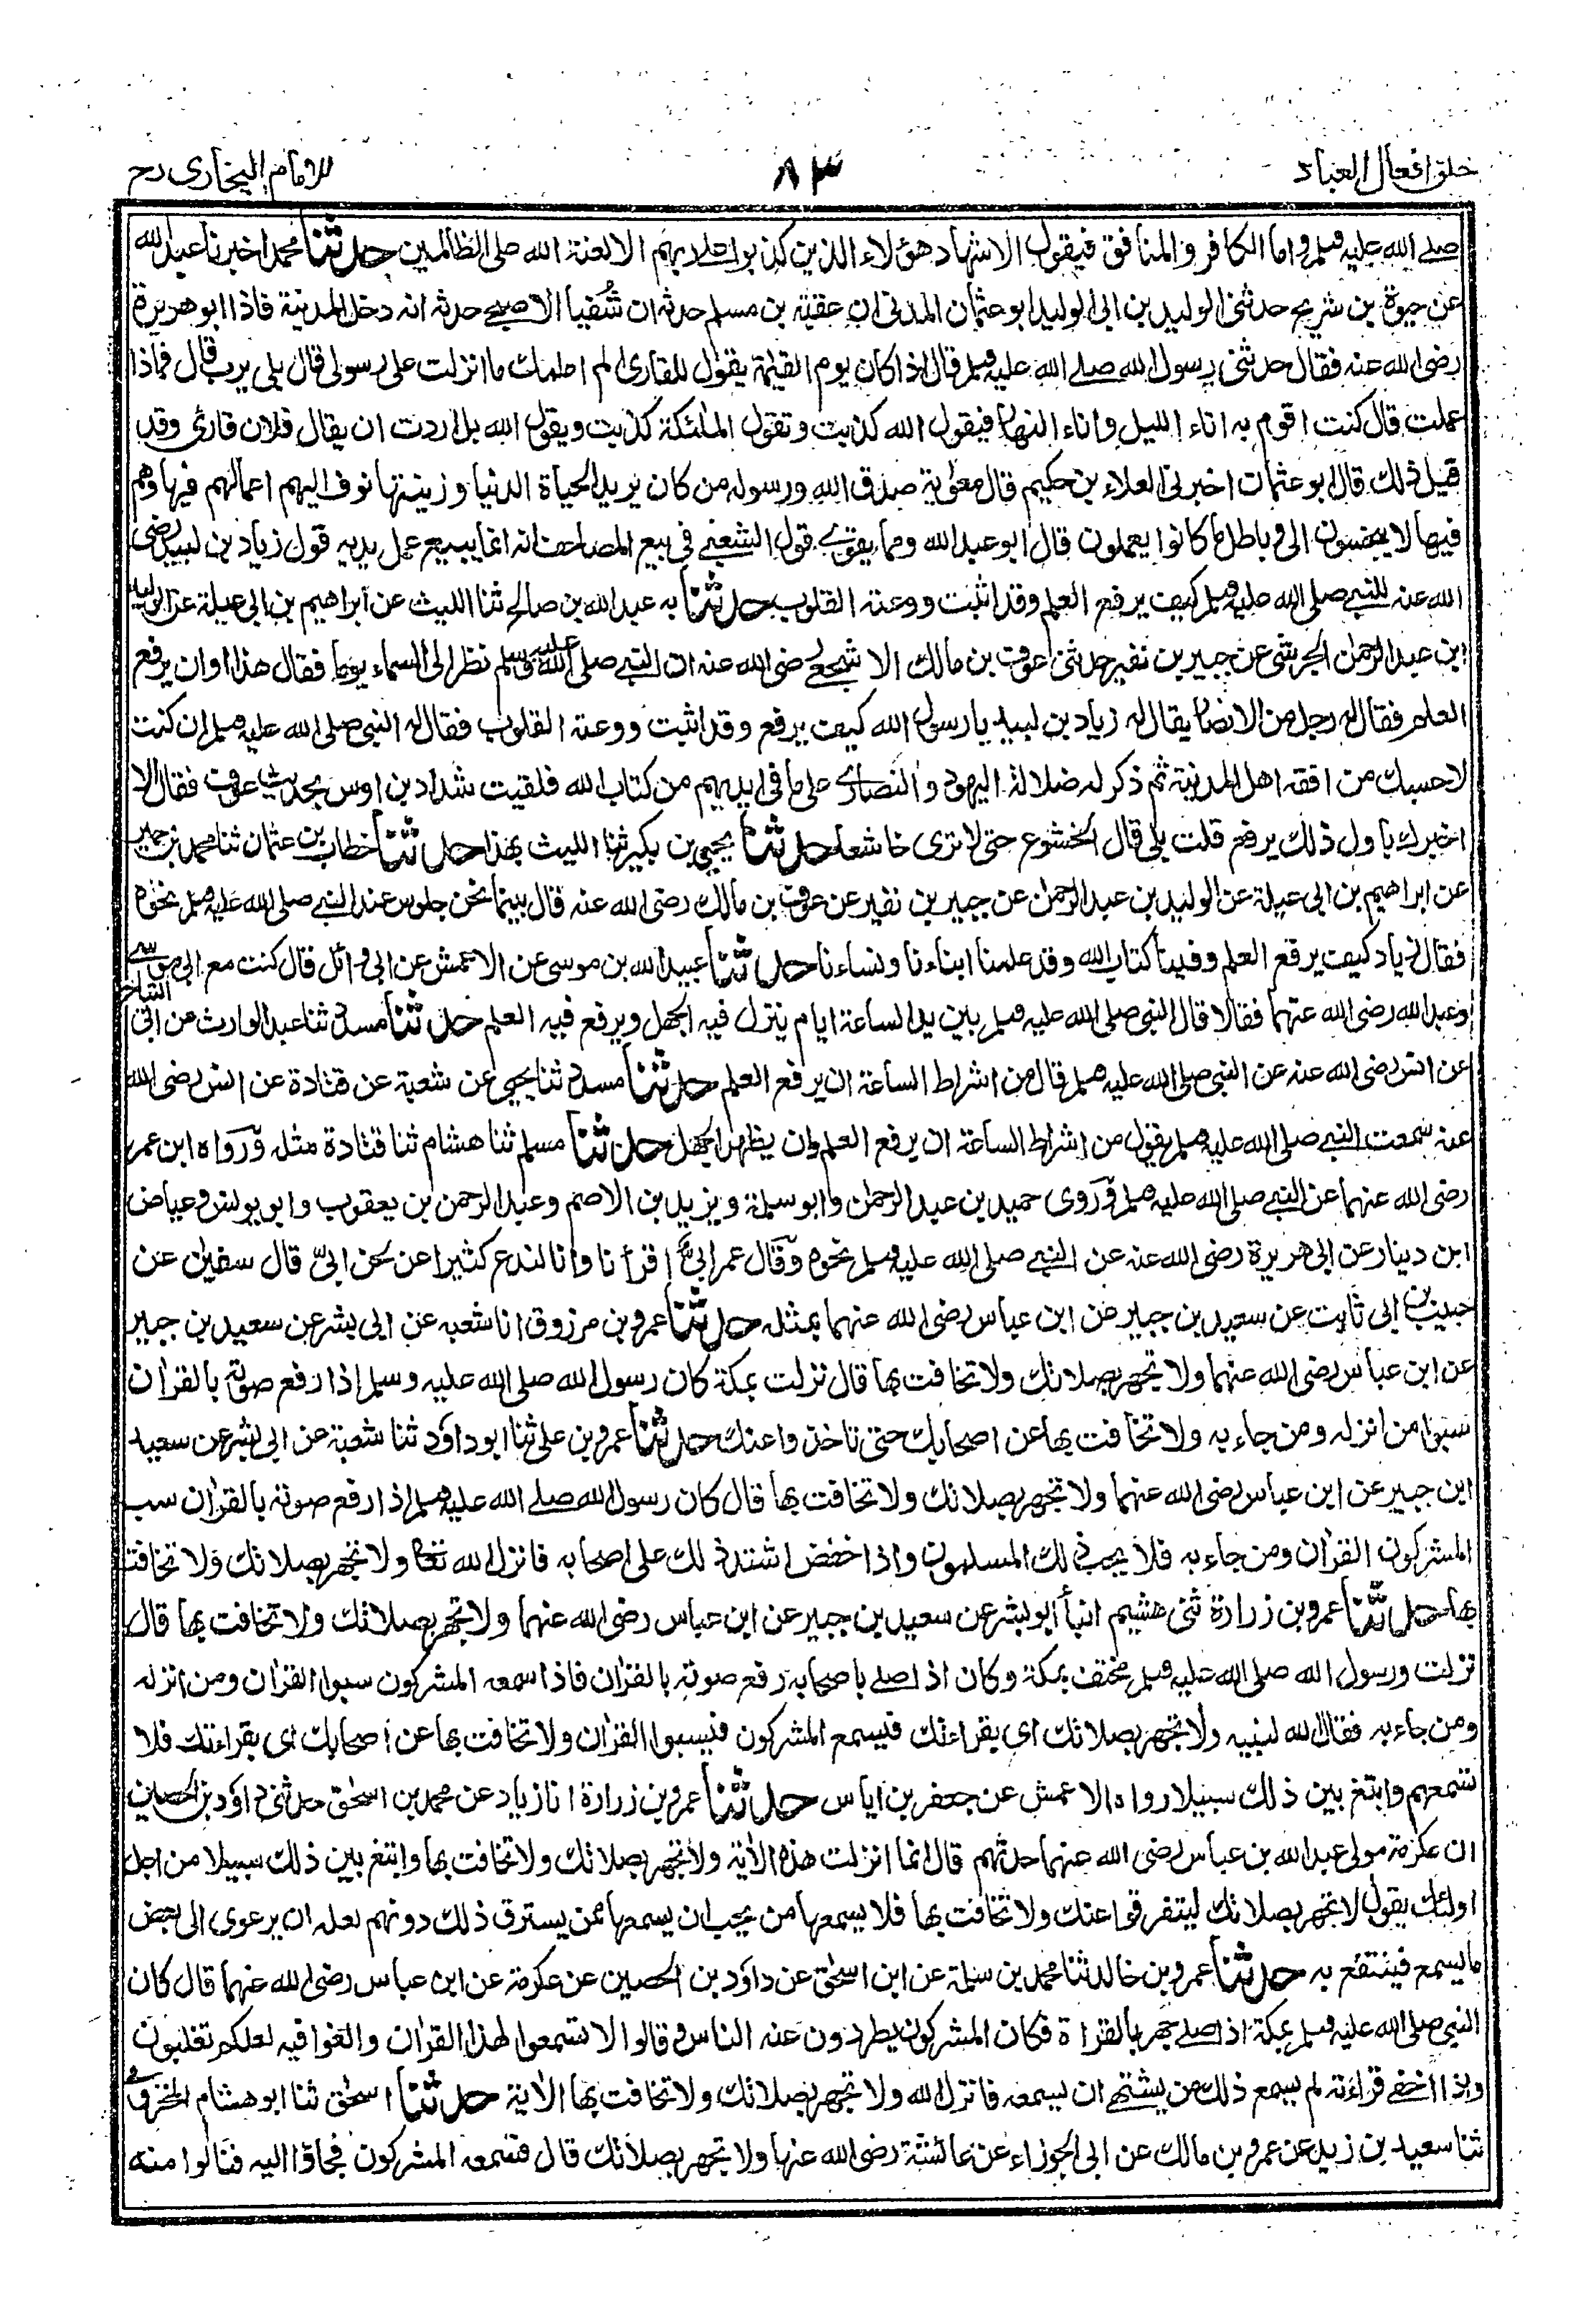 خلق افعال العباد
٨٣
للامام البخارى رح
صلے الله عليه وسلم واما الكافر والمنافق فيقول الاشهاد هؤلاء الذين كذبوا على ربهم الا لعنة الله على الظالمين حدثنا محمد اخبرنا عبد الله
عن حيوة بن شريح حدثنى الوليد بن ابى الوليد ابو عثمان المدنى ان عقبة بن مسلم حدثه ان شُفيا الاصبحے حدثه انه دخل المدينة فاذا ابو هريرة
رضى الله عنه فقال حدثنى رسول الله صلے الله عليه وسلم قال اذا كان يوم القيٰمة يقول للقارى الم اعلمك ما انزلت على رسولى قال بلى يرب قال فماذا
عملت قال كنت اقوم به اناء الليل واناء النهار فيقول الله كذبت وتقول الملٰئكة كذبت ويقول الله بل اردت ان يقال فلان قارئ وقد
قيل ذلك قال ابو عثمان اخبرنى العلاء بن حكيم قال معٰوية صدق الله ورسوله من كان يريد الحياة الدنيا وزينتها نوف اليهم اعمالهم فيها وهم
فيها لا يبخسون الى وباطل ما كانوا يعملون قال ابو عبد الله ومما يقوے قول الشعبے فى بيع المصاحف انه انما يبيع عمل يديه قول زياد بن لبيد رضى
الله عنه للنبے صلى الله عليه وسلم كيف يرفع العلم وقد اثبت ووعته القلوب حدثنا به عبد الله بن صالح ثنا الليث عن ابراهيم بن ابى عبلة عن الوليد
ابن عبد الرحمٰن الجرشى عن جبير بن نفير حدثنى عوف بن مالك الاشجعے رضى الله عنه ان النبے صلى الله عليه وسلم نظر الى السماء يوما فقال هذا اوان يرفع
العلم فقال له رجل من الانصار يقال له زياد بن لبيد يا رسول الله كيف يرفع وقد اثبت ووعته القلوب فقال له النبى صلى الله عليه وسلم ان كنت
لاحسبك من افقه اهل المدينة ثم ذكر له ضلالة اليهود والنصارے على ما فى ايديهم من كتاب الله فلقيت شداد بن اوس بحديث عوف فقال الا
اخبرك باول ذلك يرفع قلت بلى قال الخشوع حتى لا ترى خاشعا حدثنا يحيى بن بكير ثنا الليث بهذا حدثنا خطاب بن عثمان ثنا محمد بن حمير
عن ابراهيم بن ابى عبلة عن الوليد بن عبد الرحمٰن عن جبير بن نفير عن عوف بن مالك رضى الله عنه قال بينما نحن جلوس عند النبے صلى الله عليه وسلم نحوه
فقال زياد كيف يرفع العلم وفينا كتاب الله وقد علمنا ابناءنا ونساءنا حدثنا عبيد الله بن موسى عن الاعمش عن ابى وائل قال كنت مع ابى موسے
وعبد الله رضى الله عنهما فقالا قال النبى صلى الله عليه وسلم بين يدى الساعة ايام ينزل فيه الجهل ويرفع فيه العلم حدثنا مسدد ثنا عبد الوارث عن ابى التياح
عن انس رضى الله عنه عن النبى صلى الله عليه وسلم قال من اشراط الساعة ان يرفع العلم حدثنا مسدد ثنا يحيى عن شعبة عن قتادة عن انس رضى الله
عنه سمعت النبے صلى الله عليه وسلم يقول من اشراط الساعة ان يرفع العلم وان يظهر الجهل حدثنا مسلم ثنا هشام ثنا قتادة مثله ورواه ابن عمر
رضى الله عنهما عن النبے صلى الله عليه وسلم وروى حميد بن عبد الرحمٰن وابو سلمة ويزيد بن الاصم وعبد الرحمن بن يعقوب وابو يونس وعياض
ابن دينار عن ابى هريرة رضى الله عنه عن النبے صلى الله عليه وسلم نحوه وقال عمر ابىٌّ اقرأنا وانا لندع كثيرا عن لحن ابىّ قال سفيٰن عن
حبيب بن ابى ثابت عن سعيد بن جبير عن ابن عباس رضى الله عنهما بمثله حدثنا عمرو بن مرزوق انا شعبه عن ابى بشر عن سعيد بن جبير
عن ابن عباس رضى الله عنهما ولا تجهر بصلاتك ولا تخافت بها قال نزلت بمكة كان رسول الله صلى الله عليه وسلم اذا رفع صوته بالقراٰن
سبوا من انزله ومن جاء به ولا تخافت بها عن اصحابك حتى تاخذوا عنك حدثنا عمرو بن على ثنا ابو داؤد ثنا شعبة عن ابى بشر عن سعيد
ابن جبير عن ابن عباس رضى الله عنهما ولا تجهر بصلاتك ولا تخافت بها قال كان رسول الله صلے الله عليه وسلم اذا رفع صوته بالقراٰن سب
المشركون القراٰن ومن جاء به فلا يحب ذلك المسلمون واذا خفض اشتد ذلك على اصحابه فانزل الله تعا ولا تجهر بصلاتك ولا تخافت
بها حدثنا عمرو بن زرارة ثنى هشيم انبأ ابو بشر عن سعيد بن جبير عن ابن عباس رضى الله عنهما ولا تجهر بصلاتك ولا تخافت بها قال
نزلت ورسول الله صلى الله عليه وسلم مختف بمكة وكان اذا صلے باصحابه رفع صوته بالقراٰن فاذا سمعه المشركون سبوا القراٰن ومن انزله
ومن جاء به فقال الله لنبيه ولا تجهر بصلاتك اى بقراءتك فيسمع المشركون فيسبوا القراٰن ولا تخافت بها عن اصحابك اى بقراءتك فلا
تسمعهم وابتغ بين ذلك سبيلا رواه الاعمش عن جعفر بن اياس حدثنا عمرو بن زرارة انا زياد عن محمد بن اسحٰق حدثنى داؤد بن الحصين
ان عكرمة مولى عبد الله بن عباس رضى الله عنهما حدثهم قال انما انزلت هذه الاٰية ولا تجهر بصلاتك ولا تخافت بها وابتغ بين ذلك سبيلا من اجل
اولئك يقول لا تجهر بصلاتك ليتفرقوا عنك ولا تخافت بها فلا يسمعها من يحب ان يسمعها ممن يسترق ذلك دونهم لعله ان يرعوى الى بعض
ما يسمع فينتفع به حدثنا عمرو بن خالد ثنا محمد بن سلمة عن ابن اسحٰق عن داؤد بن الحصين عن عكرمة عن ابن عباس رضى الله عنهما قال كان
النبى صلى الله عليه وسلم بمكة اذا صلے جهر بالقراة فكان المشركون يطردون عنه الناس وقالوا لا تسمعوا لهذا القراٰن والغوا فيه لعلكم تغلبون
واذا اخفے قراءته لم يسمع ذلك من يشتهے ان يسمعه فانزل الله ولا تجهر بصلاتك ولا تخافت بها الاٰية حدثنا اسحٰق ثنا ابو هشام المخزومے
ثنا سعيد بن زيد عن عمرو بن مالك عن ابى الجوزاء عن عائشة رضى الله عنها ولا تجهر بصلاتك قال فسمعه المشركون فجاؤا اليه فنالوا منه